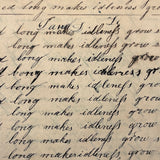 long makes idleneſs grow
long makes idleneſs grow
long makes idleneſs grow
long makes idleneſs grow
long makes idleneſs grow
long makes idleneſs grow
long makes idleneſs grow
long makes idleneſs grow
long makes idleneſs grow